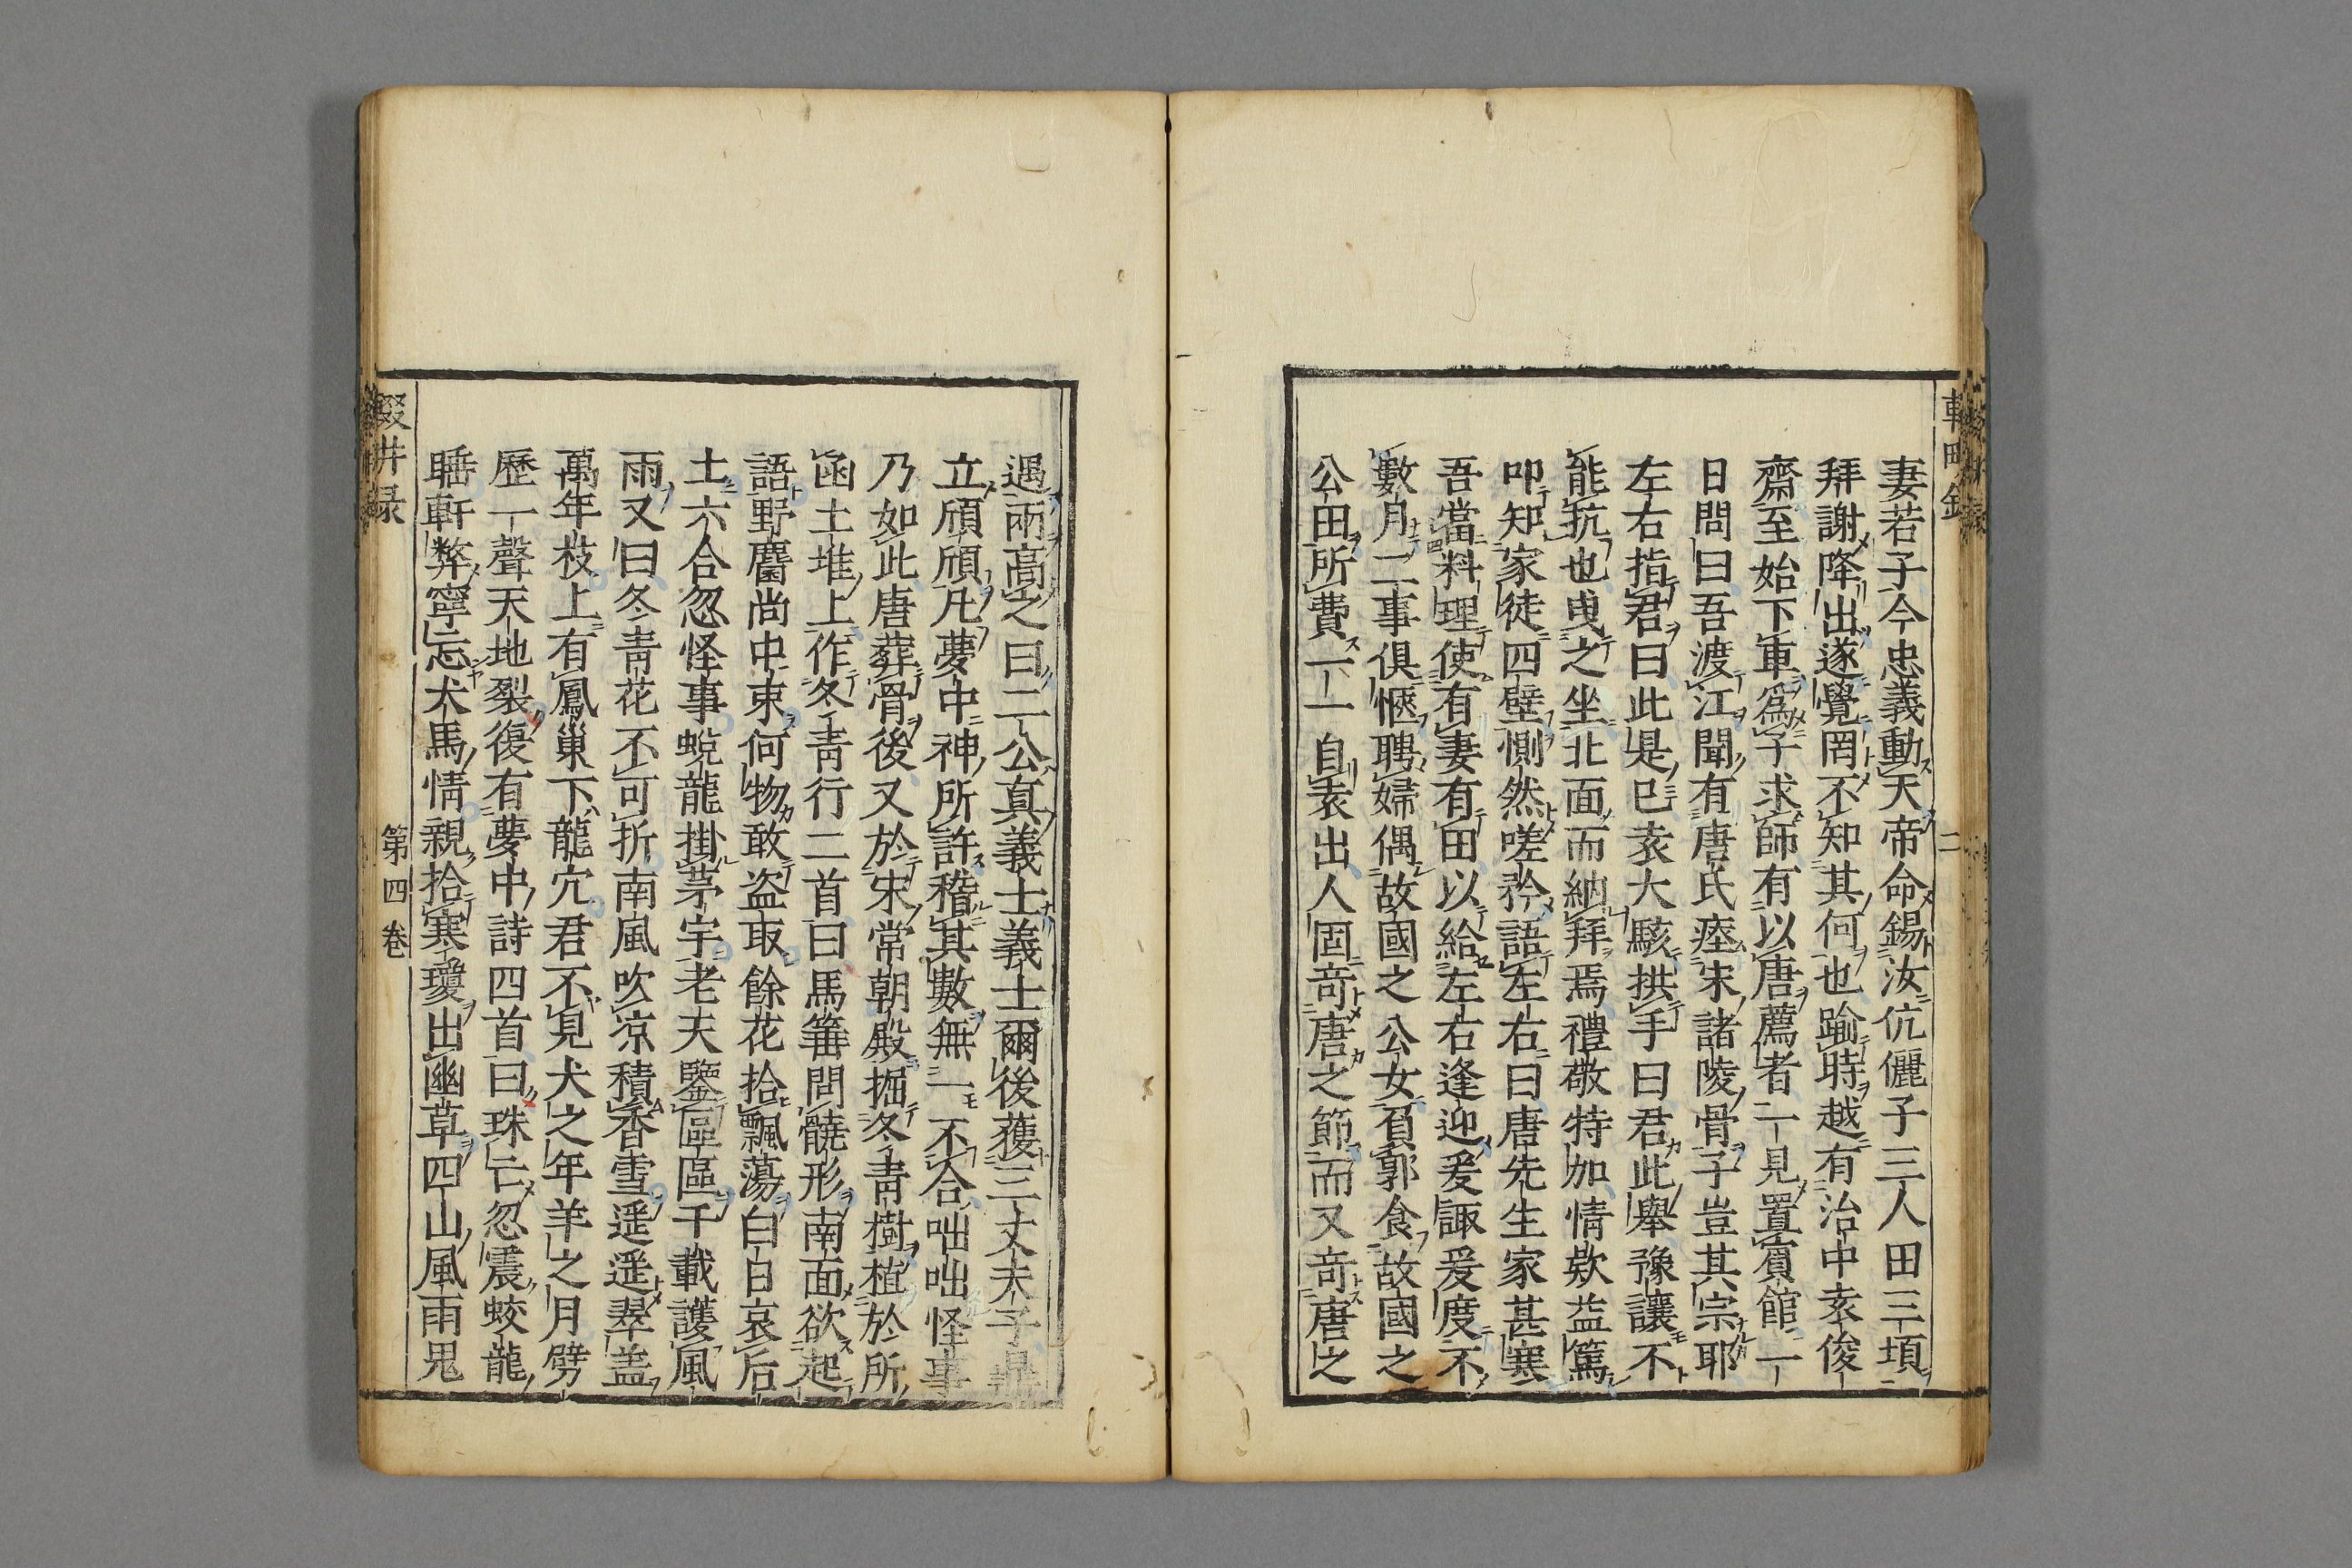 妻若子今忠義動天帝命錫汝伉儷子三人田三頃
拜謝降出遂覺罔不知其何也踰時越有治中袁俊
齋至始下車爲子求師有以唐薦者一見置賓館一
日問曰吾渡江聞有唐氏瘞宋諸陵骨子豈其宗耶
左右指君曰此是已袁大駭拱手曰君此舉豫讓不
能抗也曳之坐北面而納拜焉禮敬特加情欵益篤
叩知家徒四壁惻然嗟矜語左右曰唐先生家甚寒
吾當料理使有妻有田以給左右逢迎爰諏爰度不
數月二事俱愜聘婦偶故國之公女負郭食故國之
公田所費一一自袁出人固奇唐之節而又奇唐之
遇兩高之曰二公真義士義士爾後獲三丈夫子鼎
立頎頎凡夢中神所許稽其數無一不合咄咄怪事
乃如此唐葬骨後又於宋常朝殿掘冬青樹植於所
函土堆上作冬青行二首曰馬箠問髐形南面欲起
語野麕尚屯束何物敢盜取餘花拾飄蕩白日哀后
土六合忽怪事蛻龍掛茅宇老天鑒區區千載護風
雨又曰冬青花不可折南風吹凉積香雪遥遥翠盖
萬年枝上有鳳巢下龍穴君不見犬之年羊之月劈
歷一聲天地裂復有夢中詩四首曰珠亡忽震蛟龍
睡軒弊寧忘犬馬情親拾寒瓊出幽草四山風雨鬼
輟耕録
第四卷
二